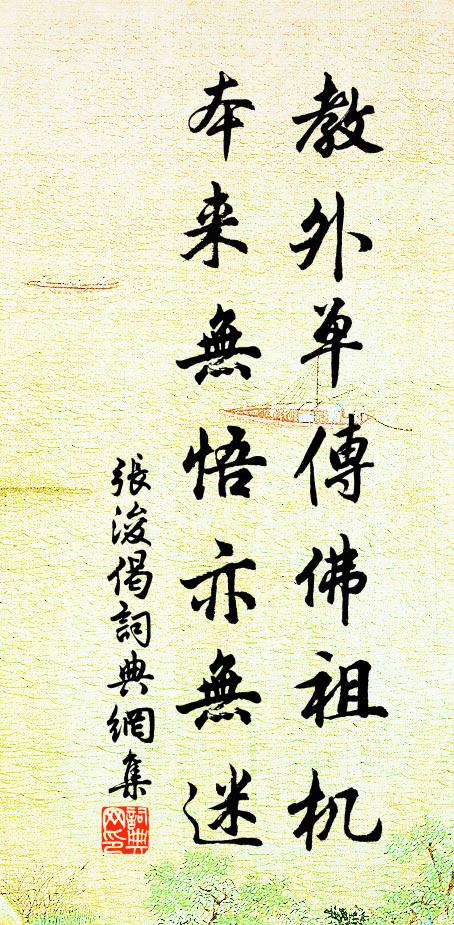 教外单傳佛祖机
本来無悟亦無迷
張浚偈詞典網集
詞典
网印